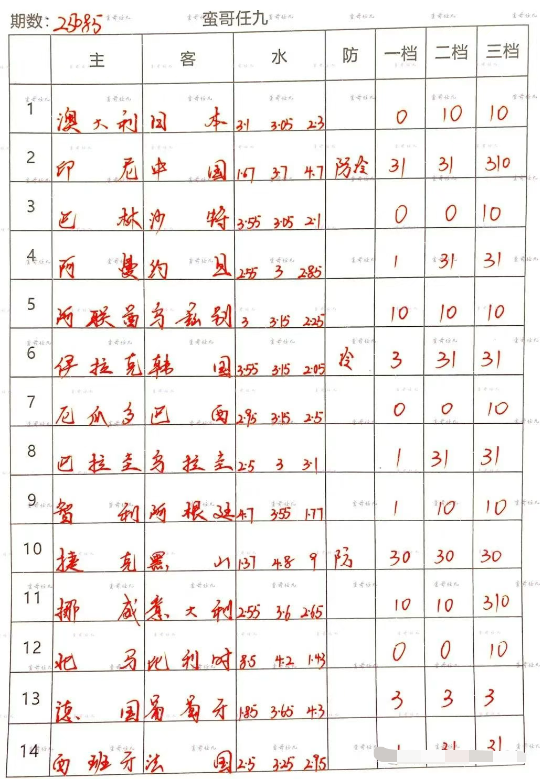 期数: 25085 蛮哥任九
主 客 水 防 一档 二档 三档
1 澳大利 日本 3.1 3.05 2.3 0 10 10
2 印尼 中国 1.67 3.7 4.7 防冷 31 31 310
3 巴林 沙特 3.55 3.05 2.1 0 0 10
4 阿曼 约旦 2.55 3 2.85 1 31 31
5 阿联酋 乌兹别 3 3.15 2.25 10 10 10
6 伊拉克 韩国 3.55 3.15 2.05 冷 3 31 31
7 厄瓜多 巴西 2.95 3.15 2.5 0 0 10
8 巴拉圭 乌拉圭 2.5 3 3.1 1 31 31
9 智利 阿根廷 4.7 3.55 1.77 1 10 10
10 捷克 黑山 1.37 4.8 9 防 30 30 30
11 挪威 意大利 2.55 3.6 2.65 10 10 310
12 北马 比利时 8.5 4.2 1.43 0 0 10
13 德国 葡萄牙 1.85 3.65 4.3 3 3 3
14 西班牙 法国 2.5 3.25 2.95 31 31